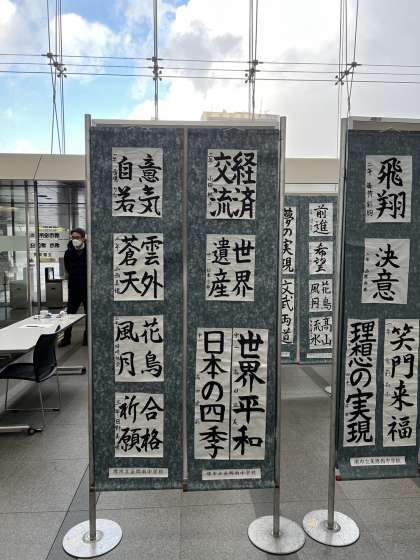 意気
自若
雲外
蒼天
花鳥
風月
合格
祈願
経済
交流
世界
遺産
世界平和
日本の四季
前進
希望
花鳥
風月
高山
流水
夢の実現
文武両道
飛翔
決意
笑門来福
理想の実現